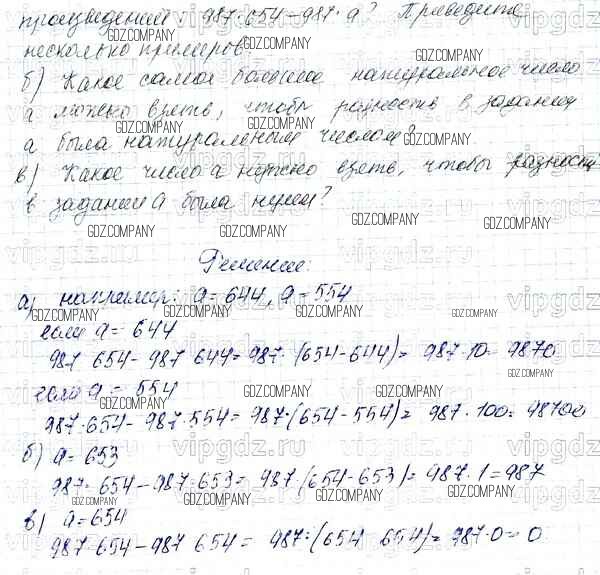 произведений 987·654-987·а? Приведите
несколько примеров
б) Какое самое большое натуральное число
а можно взять, чтобы разность в задании
а была натуральным числом?
в) Какое число а нужно взять, чтобы разность
в задании а была нулем?
Решение:
а) например: а = 644, а = 554
если а = 644
987 654 - 987 644 = 987 · (654 - 644) = 987·10 = 9870
если а = 554
987·654 - 987·554 = 987·(654 - 554) = 987·100 = 98700
б) а = 653
987·654 - 987·653 = 987 (654-653) = 987·1 = 987
в) а = 654
987 654 - 987 654 = 987·(654 654) = 987·0 = 0